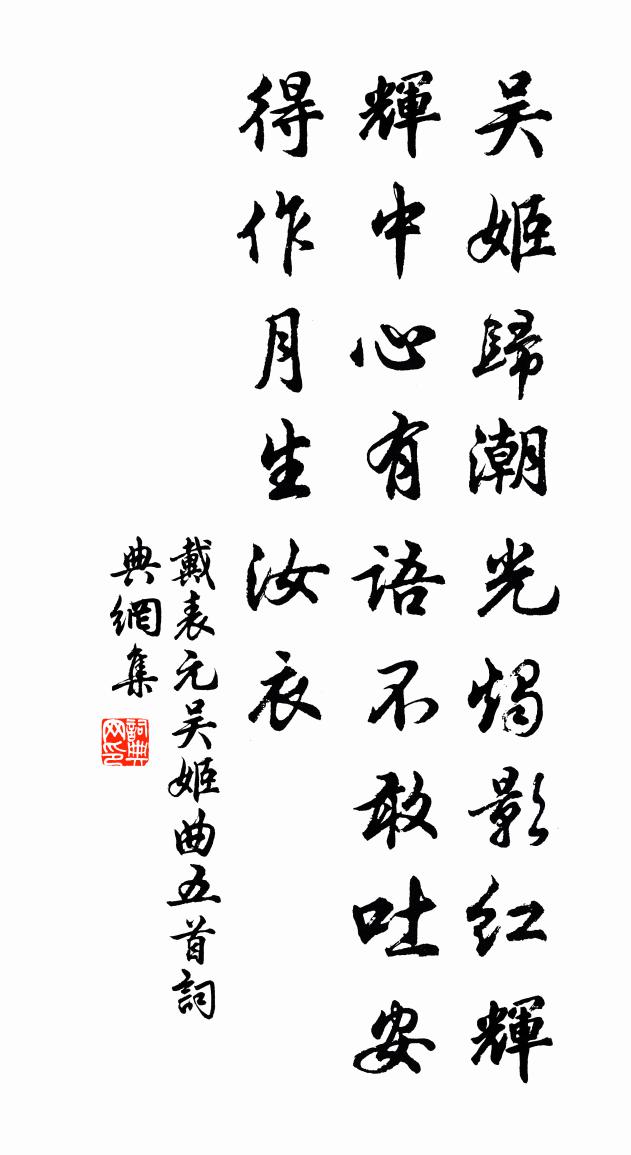 吴姬歸潮光燭影紅輝
輝中心有語不敢吐安
得作月生汝衣
戴表元吴姬曲五首詞
典網集
詞典
网印